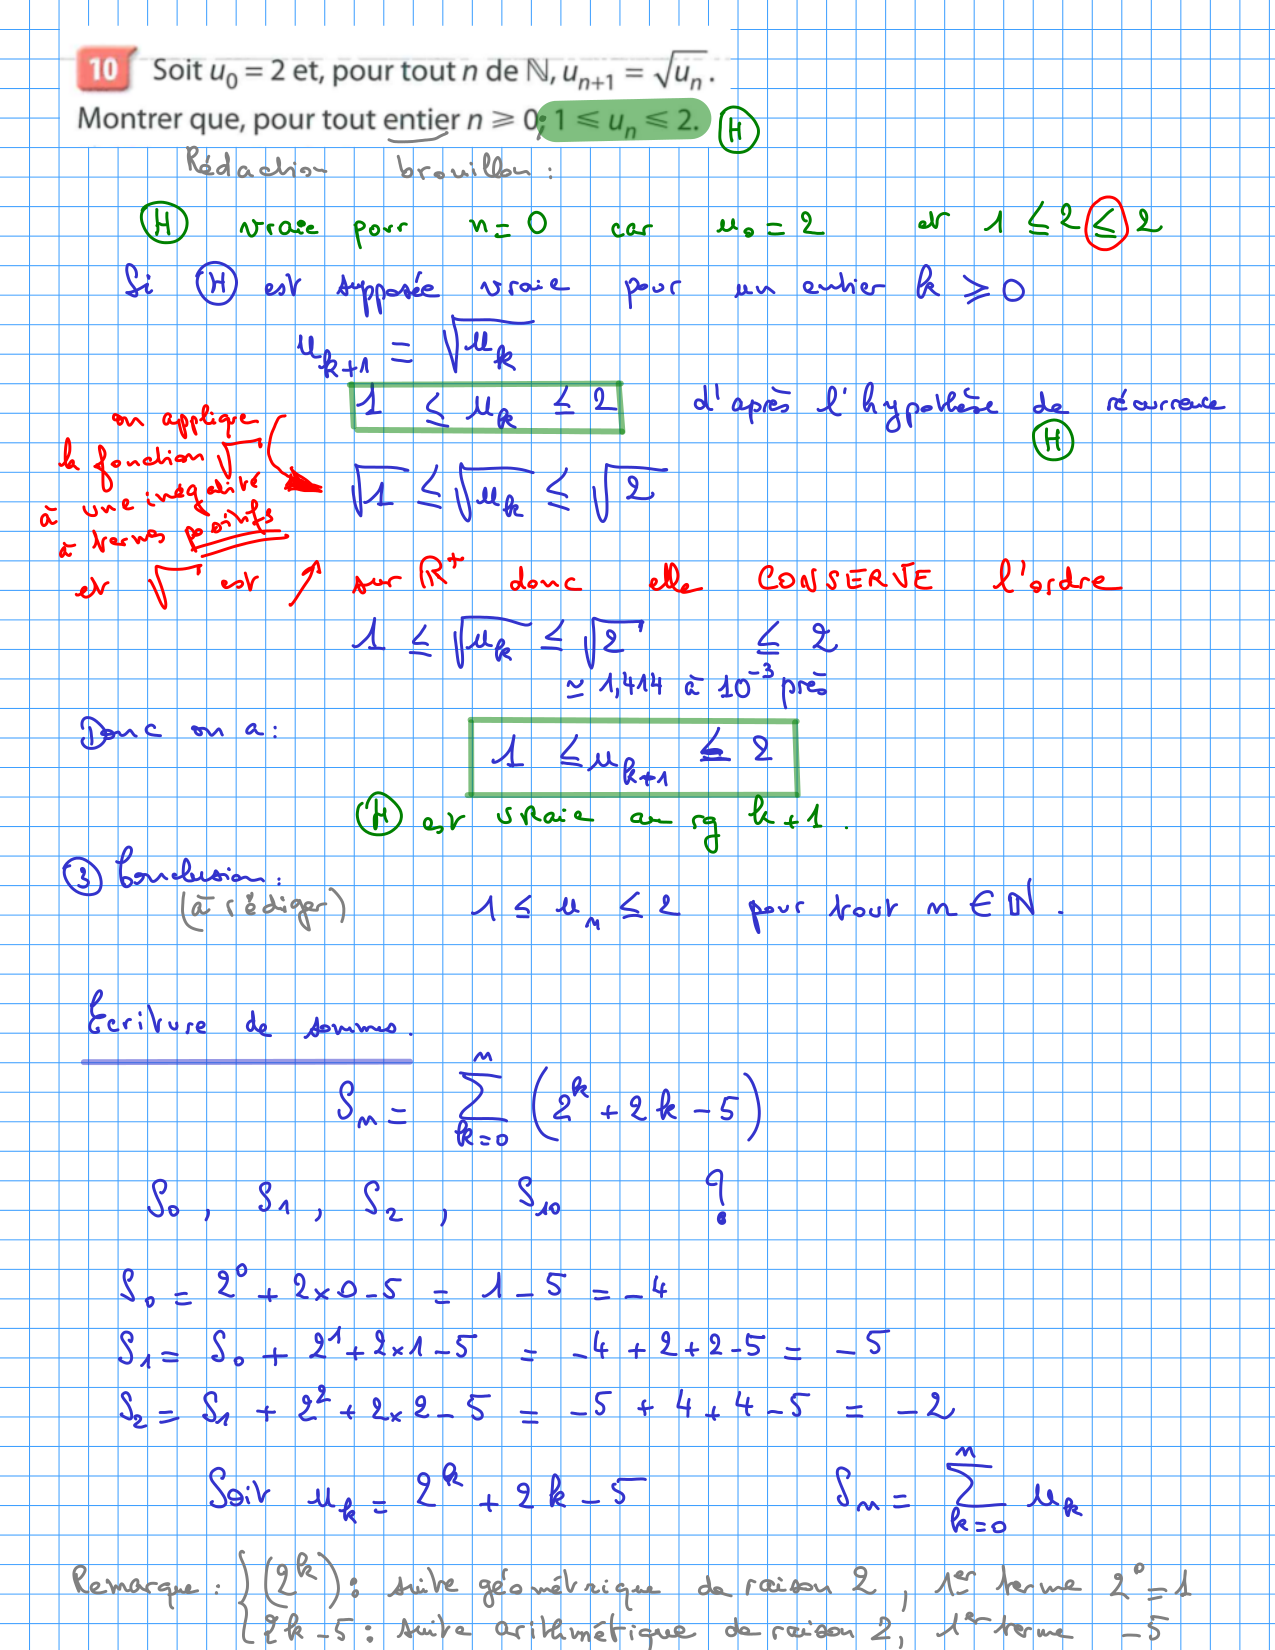 10 Soit u₀ = 2 et, pour tout n de ℕ, uₙ₊₁ = √uₙ.
Montrer que, pour tout entier n ⩾ 0 ; 1 ⩽ uₙ ⩽ 2. (H)
Rédaction brouillon :
(H) vraie pour n = 0 car u₀ = 2 et 1 ≤ 2 ≤ 2
Si (H) est supposée vraie pour un entier k ⩾ 0
u_{k+1} = √u_k
1 ≤ u_k ≤ 2 d'après l'hypothèse de récurrence (H)
on applique
la fonction √
à une inégalité
à termes positifs
√1 ≤ √u_k ≤ √2
et √ est ↗ sur ℝ⁺ donc elle CONSERVE l'ordre
1 ≤ √u_k ≤ √2 ≤ 2
≃ 1,414 à 10⁻³ près
Donc on a :
1 ≤ u_{k+1} ≤ 2
(H) est vraie au rg k+1.
③ Conclusion :
(à rédiger) 1 ≤ uₙ ≤ 2 pour tout n ∈ ℕ.
Ecriture de sommes.
Sₙ = ∑_{k=0}^{n} (2^k + 2k − 5)
S₀ , S₁ , S₂ , S₁₀ ?
S₀ = 2⁰ + 2×0 − 5 = 1 − 5 = −4
S₁ = S₀ + 2¹ + 2×1 − 5 = −4 + 2 + 2 − 5 = −5
S₂ = S₁ + 2² + 2×2 − 5 = −5 + 4 + 4 − 5 = −2
Soit u_k = 2^k + 2k − 5 Sₙ = ∑_{k=0}^{n} u_k
Remarque : { (2^k) : suite géométrique de raison 2, 1er terme 2⁰ = 1
2k − 5 : suite arithmétique de raison 2, 1er terme −5